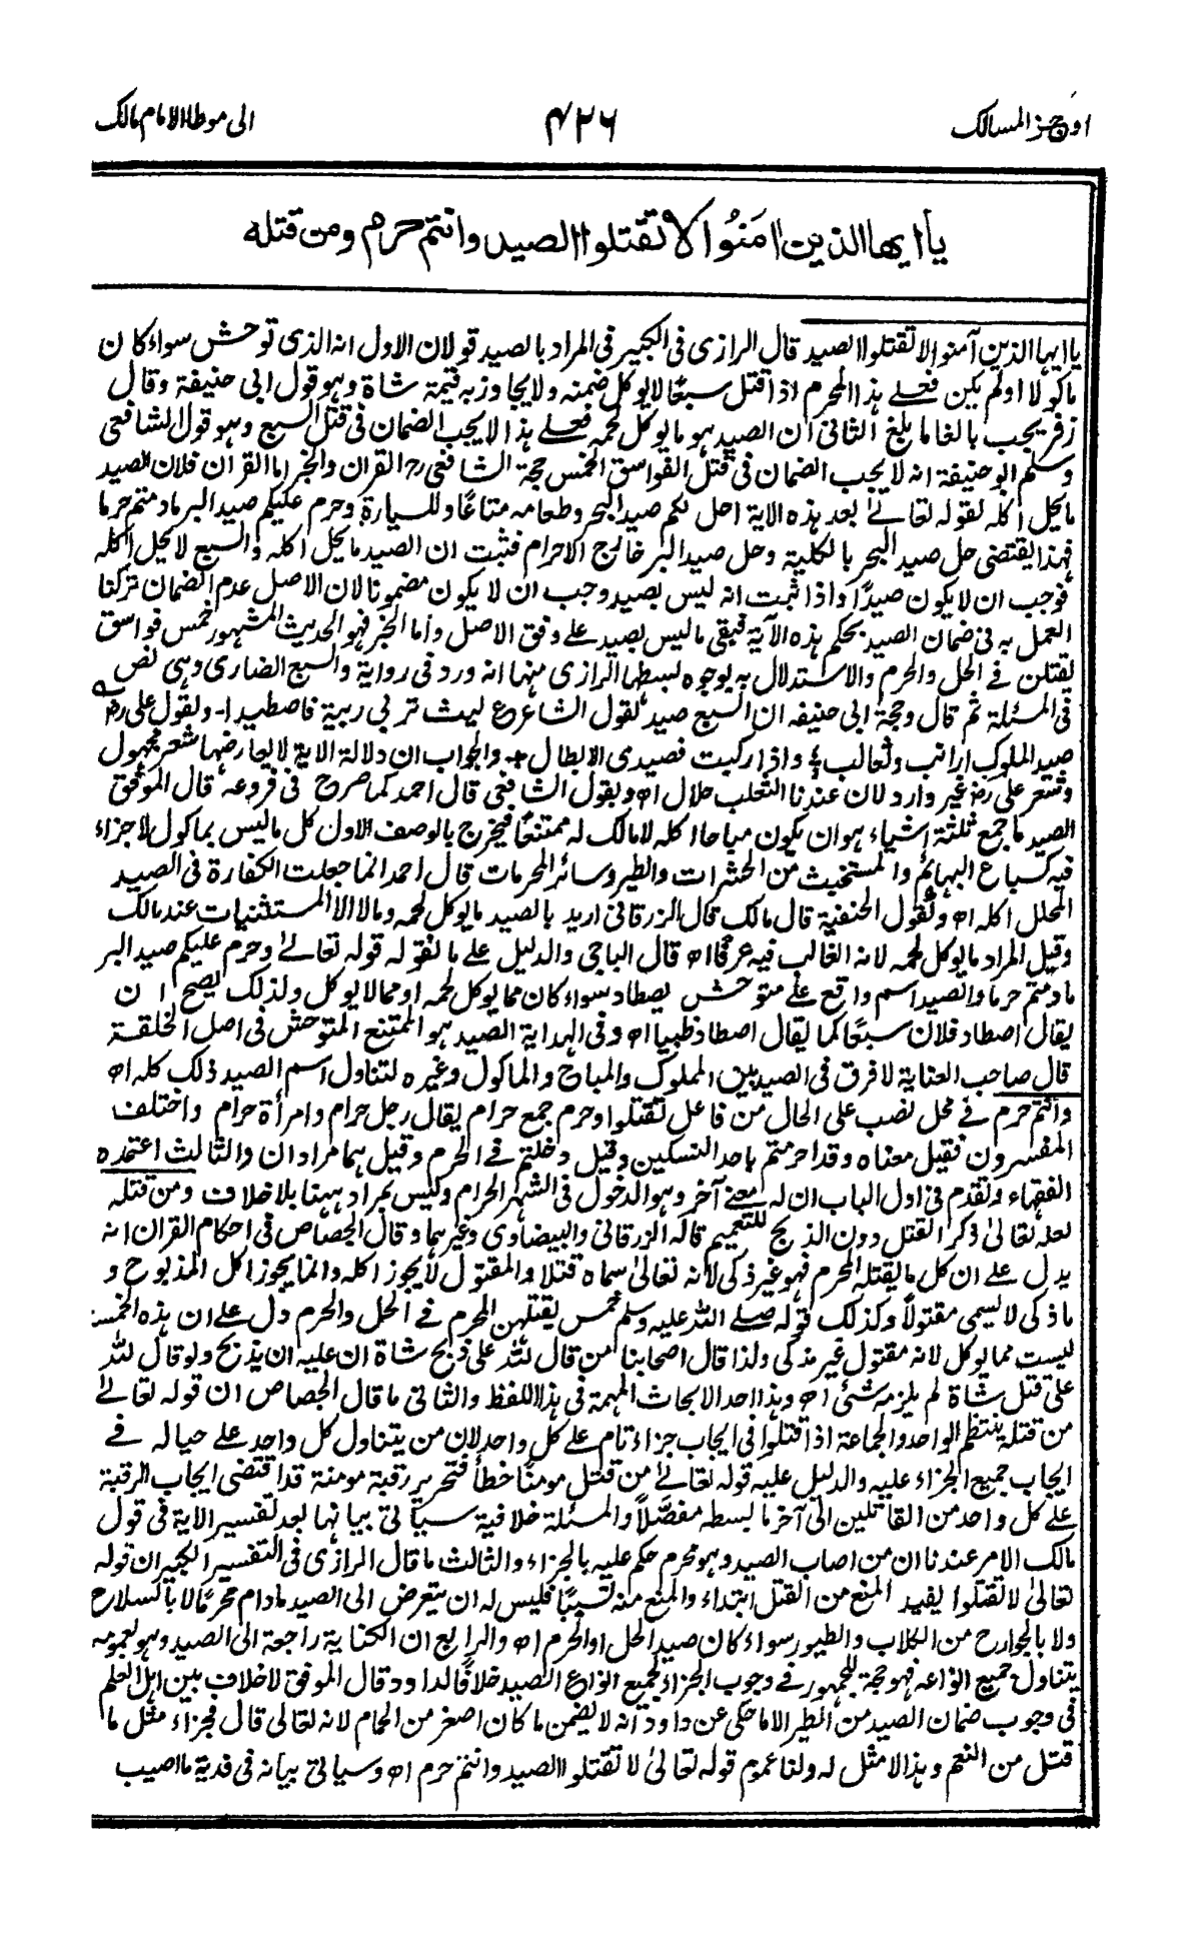 اوجز المسالك
٤٢٦
الى موطا الامام مالك
ياايها الذين امَنُوا لا تقتلوا الصيد وانتم حرم ومن قتله
يا ايها الذين آمنوا لا تقتلوا الصيد قال الرازى فى الكبير فى المراد بالصيد قولان الاول انه الذى توحش سواء كان
ماكولا اولم يكن فعلى هذا المحرم اذا قتل سبعًا لا يوكل ضمنه ولا يجاوز به قيمة شاة وهو قول ابى حنيفة وقال
زفر يجب بالغا ما بلغ الثانى ان الصيد هو ما يوكل لحمه فعلى هذا لا يجب الضمان فى قتل السبع وهو قول الشافعى
وسلم ابو حنيفة انه لا يجب الضمان فى قتل الفواسق الخمس حجة الشافعى رح القران والخبر اما القران فلان الصيد
ما يحل اكله لقوله تعالىٰ بعد هذه الاية احل لكم صيد البحر وطعامه متاعًا لكم وللسيارة وحرم عليكم صيد البر ما دمتم حرما
فهذا يقتضى حل صيد البحر بالكلية وحل صيد البر خارج الاحرام فثبت ان الصيد ما يحل اكله والسبع لا يحل اكله
فوجب ان لا يكون صيدًا واذا ثبت انه ليس بصيد وجب ان لا يكون مضمونا لان الاصل عدم الضمان تركنا
العمل به فى ضمان الصيد بحكم هذه الآية فبقى ما ليس بصيد على وفق الاصل واما الخبر فهو الحديث المشهور خمس فواسق
يقتلن فى الحل والحرم والاستدلال به بوجوه بسطها الرازى منها انه ورد فى رواية والسبع الضارى وهى نص
فى المسئلة ثم قال وحجة ابى حنيفه ان السبع صيد لقول الشاعر ع ليث تربى ربية فاصطيدا- ولقول على رض
صيد الملوك ارانب وثعالب ؛ واذا ركبت فصيدى الابطال + والجواب ان دلالة الاية لا يعارضها شعر مجهول
وشعر على رض غير وارد لان عندنا الثعلب حلال اه وبقول الشافعى قال احمد كما صرح فى فروعه قال الموفق
الصيد ما جمع ثلثة اشياء هو ان يكون مباحا اكله لا مالك له ممتنعًا فيخرج بالوصف الاول كل ما ليس بماكول لا جزاء
فيه كسباع البهائم والمستخبث من الحشرات والطير وسائر المحرمات قال احمد انما جعلت الكفارة فى الصيد
المحلل اكله اه وبقول الحنفية قال مالك قال الزرقانى اريد بالصيد ما يوكل لحمه وما لا الا المستثنيات عند مالك
وقيل المراد ما يوكل لحمه لانه الغالب فيه عرفًا اه قال الباجى والدليل على ما نقوله قوله تعالىٰ وحرم عليكم صيد البر
ما دمتم حرما والصيد اسم واقع على متوحش يصطاد سواء كان مما يوكل لحمه او مما لا يوكل ولذلك يصح ان
يقال اصطاد فلان سبعًا كما يقال اصطاد ظبيا اه وفى الهداية الصيد هو الممتنع المتوحش فى اصل الخلقة
قال صاحب العناية لا فرق فى الصيد بين المملوك والمباح والماكول وغيره لتناول اسم الصيد ذلك كله اه
وانتم حرم فى محل نصب على الحال من فاعل تقتلوا وحرم جمع حرام يقال رجل حرام وامرأة حرام واختلف
المفسرون فقيل معناه وقد احرمتم باحد النسكين وقيل دخلتم فى الحرم وقيل هما مرادان والثالث اعتمده
الفقهاء وتقدم فى اول الباب ان له معنى آخر وهو الدخول فى الشهر الحرام وليس بمراد ههنا بلا خلاف ومن قتله
لعله تعالىٰ ذكر القتل دون الذبح للتعميم قاله الزرقانى والبيضاوى وغيرهما وقال الجصاص فى احكام القران انه
يدل على ان كل ما يقتله المحرم فهو غير ذكى لانه تعالىٰ سماه قتلا والمقتول لا يجوز اكله وانما يجوز اكل المذبوح و
ما ذكى لا يسمى مقتولًا وكذلك قوله صلى الله عليه وسلم خمس يقتلهن المحرم فى الحل والحرم دل على ان هذه الخمس
ليست مما يوكل لانه مقتول غير مذكى ولذا قال اصحابنا من قال لله على ذبح شاة ان عليه ان يذبح ولو قال لله
على قتل شاة لم يلزمه شئ اه وهذا احد الابحاث المهمة فى هذا اللفظ والثانى ما قال الجصاص ان قوله تعالىٰ
من قتله ينتظم الواحد والجماعة اذا قتلوا فى ايجاب جزاء تام على كل واحد لان من يتناول كل واحد على حياله فى
ايجاب جميع الجزاء عليه والدليل عليه قوله تعالىٰ من قتل مومنًا خطأ فتحرير رقبة مومنة قد اقتضى ايجاب الرقبة
على كل واحد من القاتلين الى آخر ما بسطه مفصلًا والمسئلة خلافية سياتى بيانها بعد تفسير الاية فى قول
مالك الامر عندنا ان من اصاب الصيد وهو محرم حكم عليه بالجزاء والثالث ما قال الرازى فى التفسير الكبير ان قوله
تعالىٰ لا تقتلوا يفيد المنع من القتل ابتداء والمنع منه تسببًا فليس له ان يتعرض الى الصيد ما دام محرمًا لا بالسلاح
ولا بالجوارح من الكلاب والطيور سواء كان صيد الحل او الحرم اه والرابع ان الكناية راجعة الى الصيد وهو لعمومه
يتناول جميع انواعه فهو حجة للجمهور فى وجوب الجزاء لجميع انواع الصيد خلافًا لداود قال الموفق لا خلاف بين اهل العلم
فى وجوب ضمان الصيد من الطير الا ما حكى عن داود انه لا يضمن ما كان اصغر من الحمام لانه تعالى قال فجزاء مثل ما
قتل من النعم وهذا لا مثل له ولنا عموم قوله تعالىٰ لا تقتلوا الصيد وانتم حرم اه وسياتى بيانه فى فدية ما اصيب